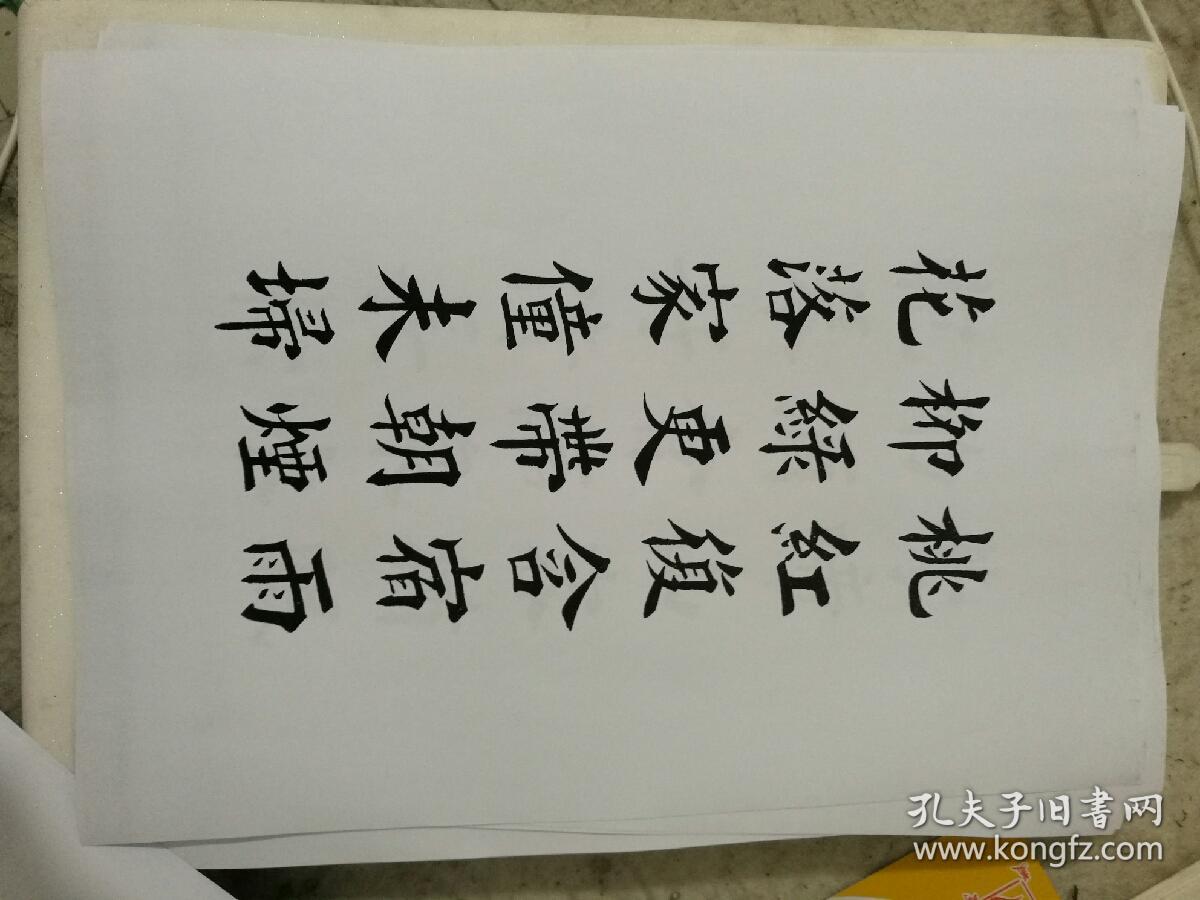 桃紅復含宿雨
柳綠更帶朝煙
花落家僮未埽
孔夫子旧書网
www.kongfz.com